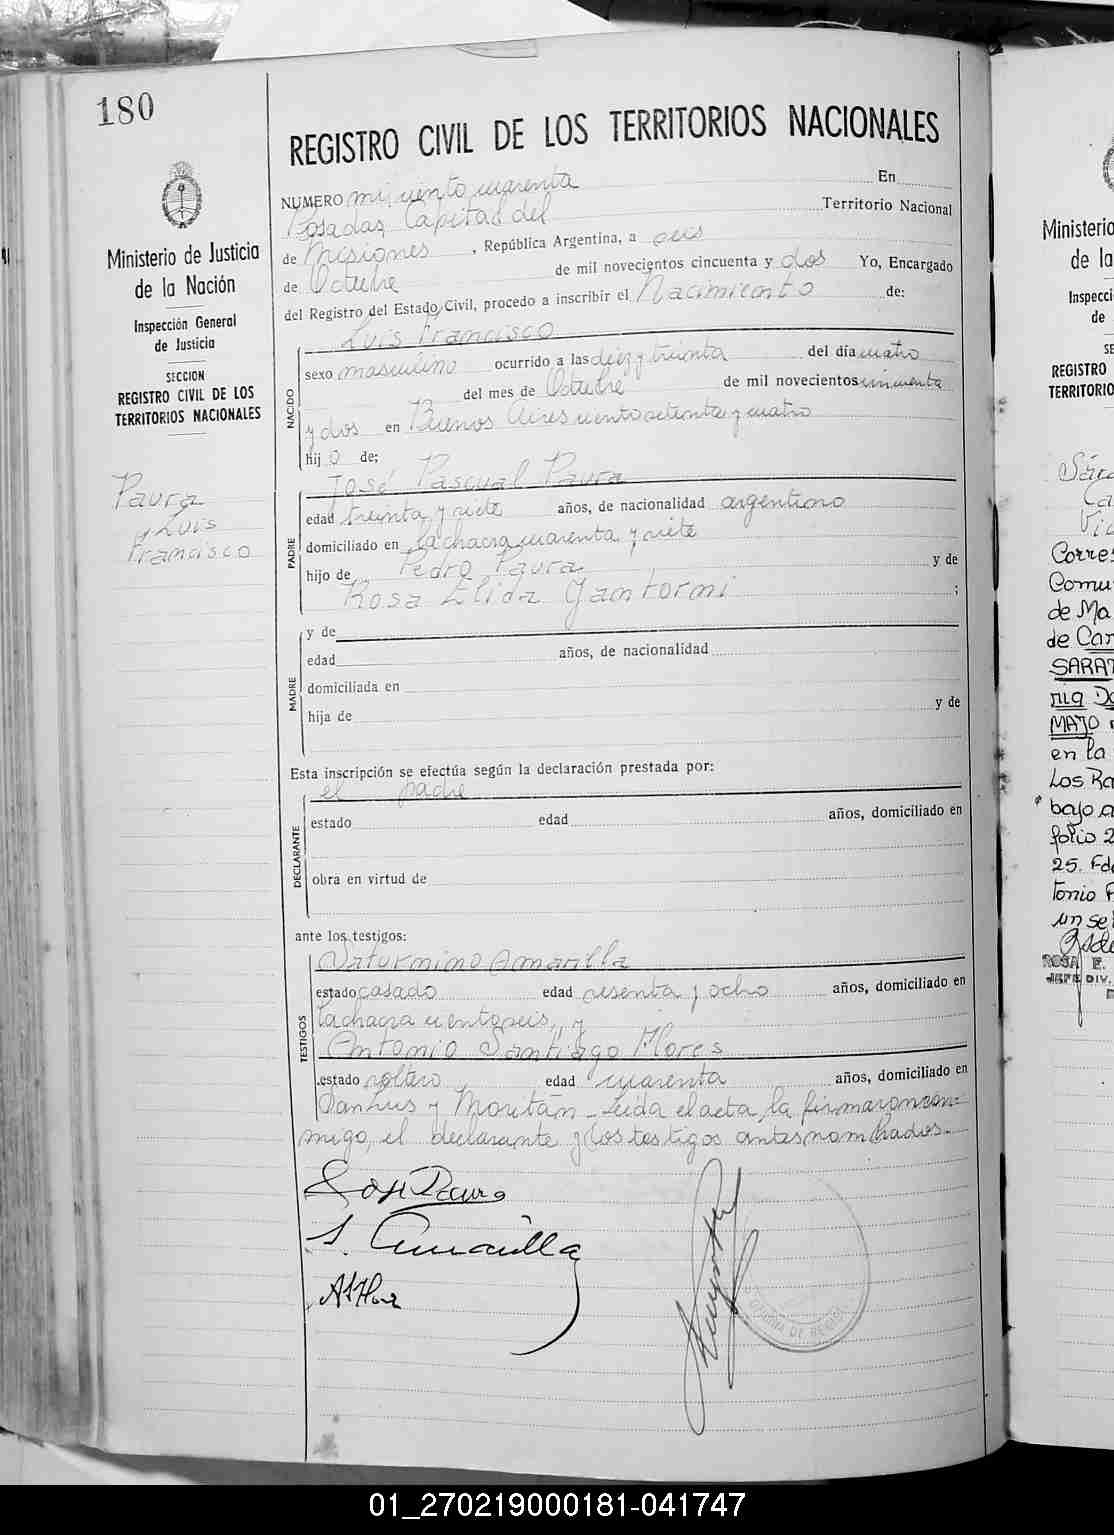 180
Ministerio de Justicia
de la Nación
Inspección General
de Justicia
SECCION
REGISTRO CIVIL DE LOS
TERRITORIOS NACIONALES
Paura
Luis
Francisco
REGISTRO CIVIL DE LOS TERRITORIOS NACIONALES
NUMERO mil ciento cuarenta En
Posadas, Capital del Territorio Nacional
de Misiones, República Argentina, a seis
de Octubre de mil novecientos cincuenta y dos Yo, Encargado
del Registro del Estado Civil, procedo a inscribir el Nacimiento de:
NACIDO
Luis Francisco
sexo masculino ocurrido a las diez y treinta del día cuatro
del mes de Octubre de mil novecientos cincuenta
y dos en Buenos Aires ciento setenta y cuatro
hijo de:
PADRE
José Pascual Paura
edad treinta y siete años, de nacionalidad argentino
domiciliado en la chacra cuarenta y siete
hijo de Pedro Paura y de
Rosa Elida ;
MADRE
y de
edad años, de nacionalidad
domiciliada en
hija de y de
Esta inscripción se efectúa según la declaración prestada por:
DECLARANTE
el padre
estado edad años, domiciliado en
obra en virtud de
ante los testigos:
TESTIGOS
Saturnino Amarilla
estado casado edad sesenta y ocho años, domiciliado en
la chacra ciento seis, y
Antonio Santiago Flores
estado soltero edad cuarenta años, domiciliado en
San Luis y Moritán - Leida el acta, la firmaron con-
migo, el declarante y los testigos antes nombrados.-
José Paura
S. Amarilla
Ministerio
de la
Inspecci
de
SE
REGISTRO
TERRITORIO
Corres
Comu
de Ma
de Car
SARAT
MAJO
en la
Los Ra
bajo a
folio 2
25. Fdo
tonio F
un sel
ROSA E.
JEFE DIV.
01_270219000181-041747